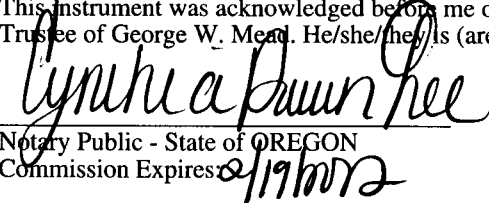 This instrument was acknowledged before me o
Trustee of George W. Mead. He/she/they is (are
Cynthia
Notary Public - State of OREGON
Commission Expires: